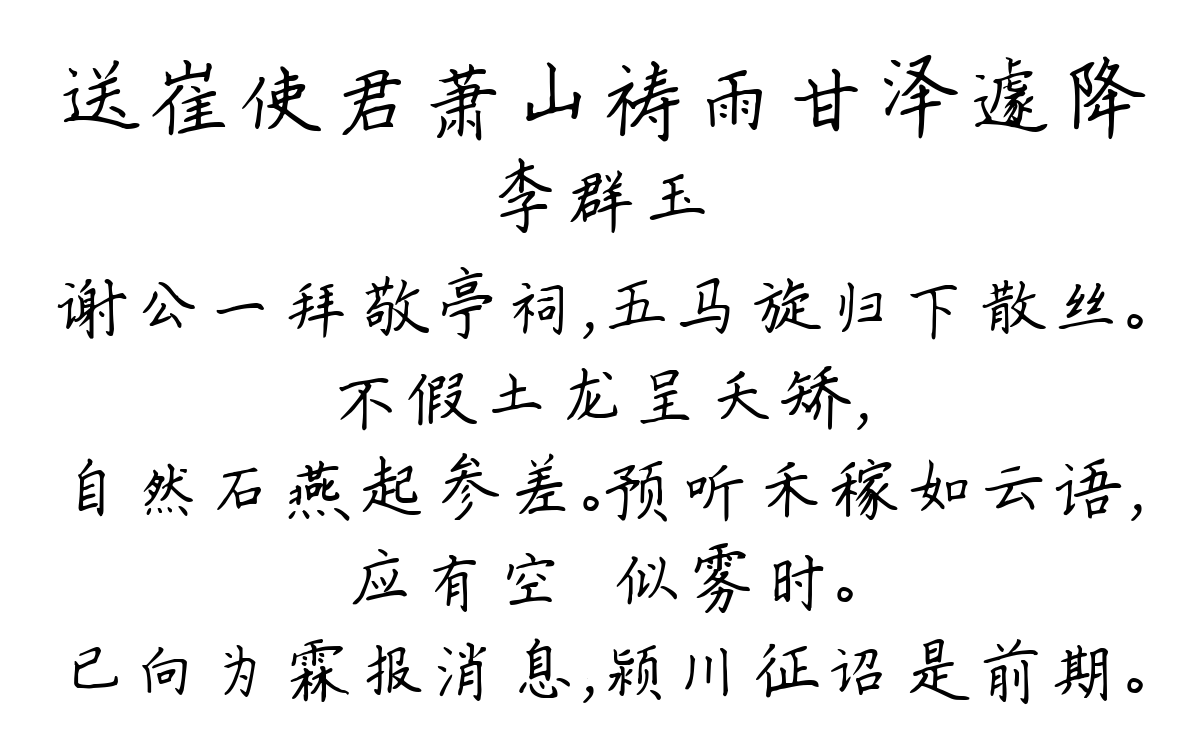 送崔使君萧山祷雨甘泽遽降
李群玉
谢公一拜敬亭祠,五马旋归下散丝。
不假土龙呈夭矫,
自然石燕起参差。预听禾稼如云语,
应有空 似雾时。
已向为霖报消息,颍川征诏是前期。